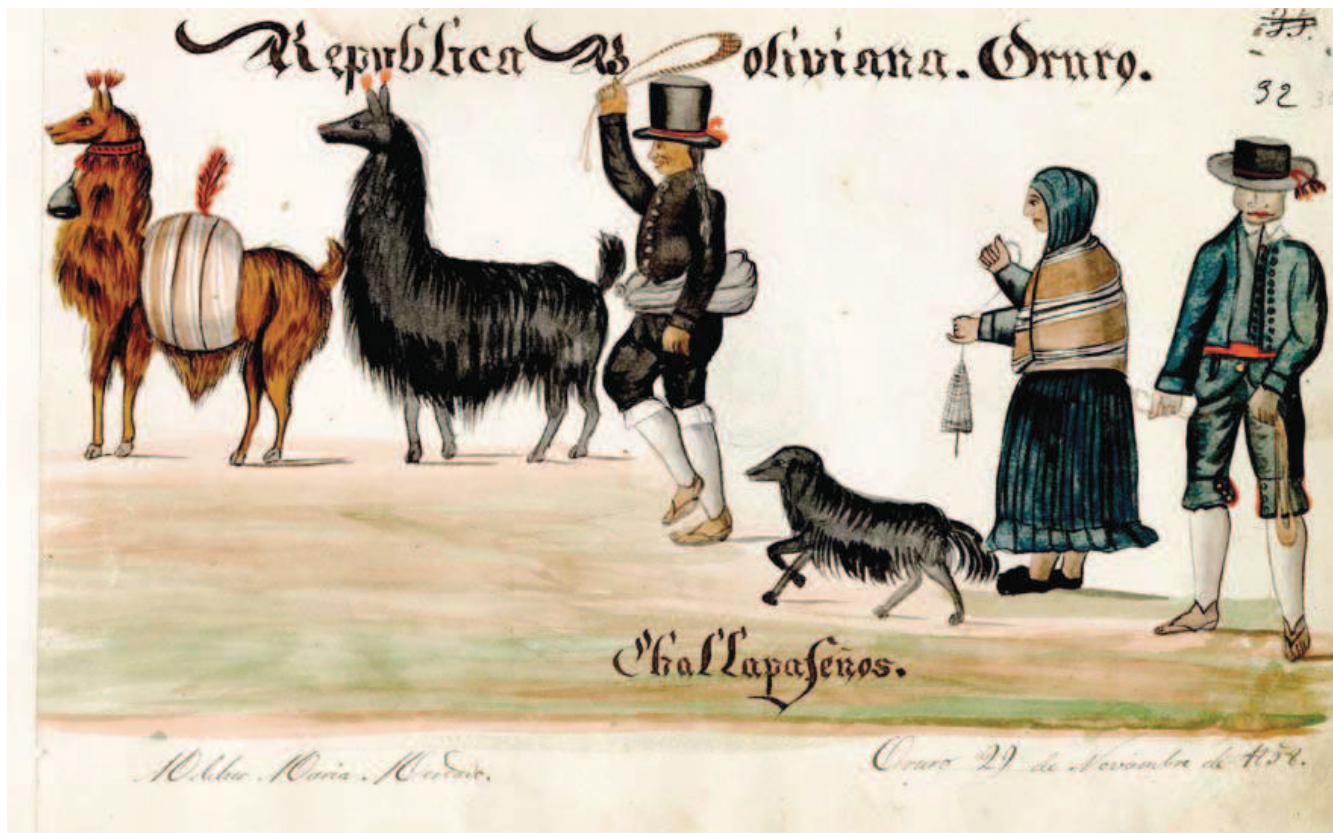 Republica Boliviana. Oruro.
92
Challapaseños.
Melchor Maria Mercado.
Oruro 29 de Noviembre de 1858.